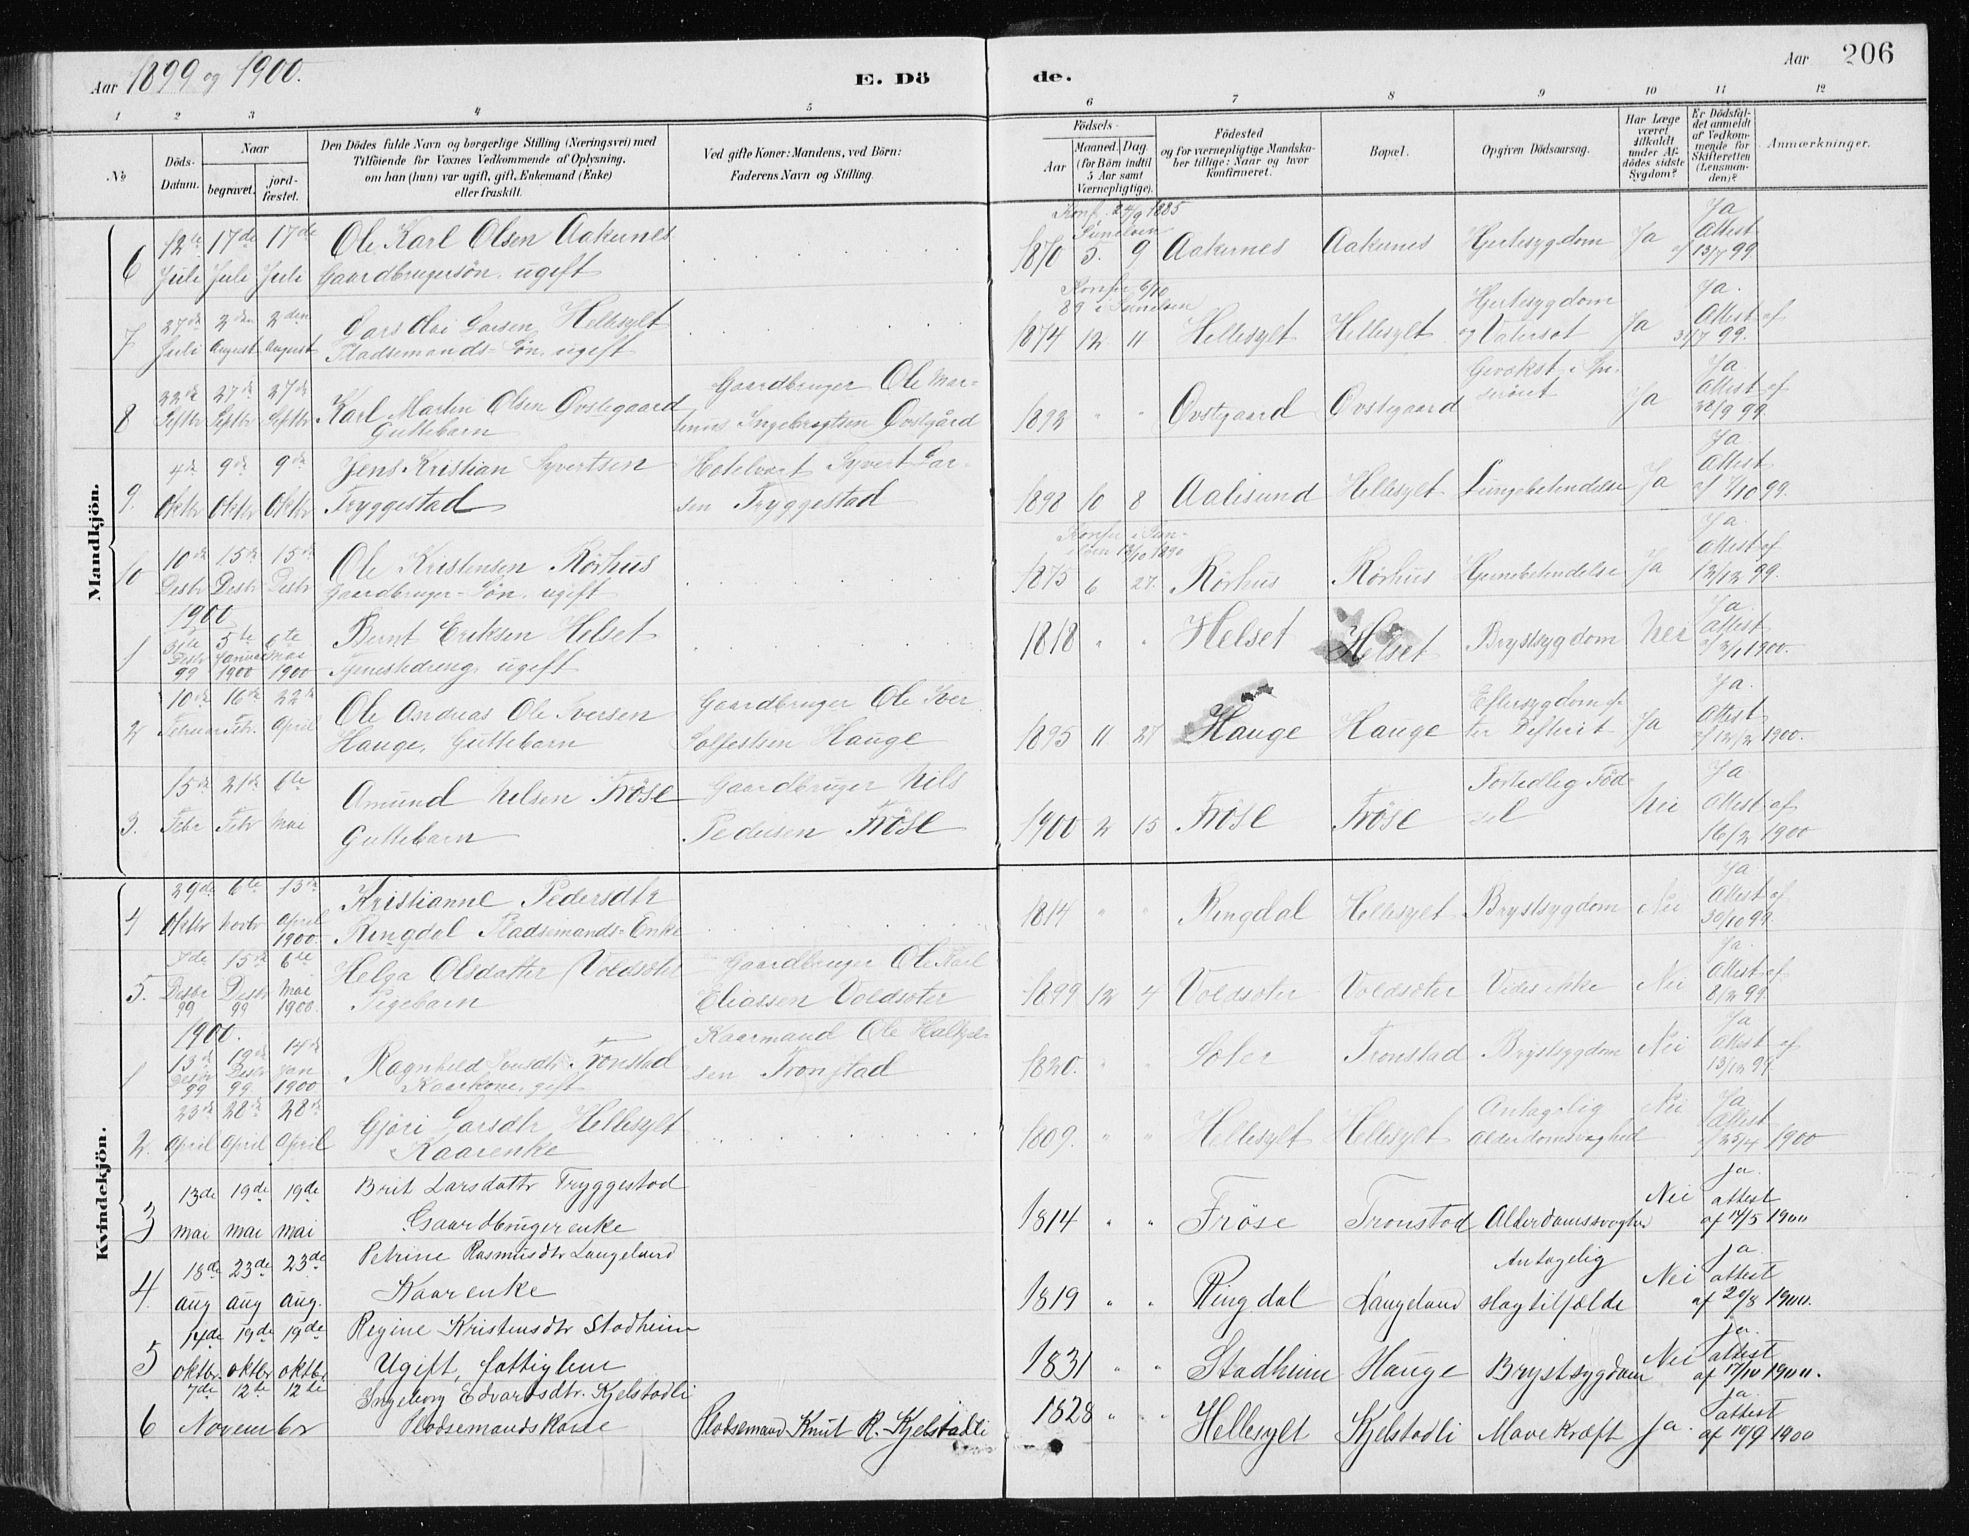 Aar 1899 og 1900.
E. Dö de.
Aar 206
1 2 3 4 5 6 7 8 9 10 11 12
No
Döds-Datum.
Naar
begravet.
jord-fæstet.
Den Dödes fulde Navn og borgerlige Stilling (Næringsvei) med
Tilföiende for Voxnes Vedkommende af Oplysning,
om han (hun) var ugift, gift, Enkemand (Enke)
eller fraskilt.
Ved gifte Koner: Mandens, ved Börn:
Faderens Navn og Stilling.
Födsels-
Aar
Maaned, Dag
(for Börn indtil
5 Aar samt
Værnepligtige).
Födested
og for værnepligtige Mandska-
ber tillige: Naar og hvor
Konfirmeret.
Bopæl.
Opgiven Dödsaarsag.
Har Læge
været
tilkaldt
under Af-
dödes sidste
Sygdom?
Er Dödsfal-
det anmeldt
af Vedkom-
mende for
Skifteretten
(Lensman-
den)?
Anmærkninger.
Mandkjön.
Konf. 24/9 1885
Sunelven
6 12te Juli 17de Juli 17de Juli Ole Karl Olsen Aakernes 1870 5. 9 Aakernes Aakernes Hjertesygdom Ja Ja Attest af 13/7 99.
Gaardbrugersön, ugift
Konfir 6/10
89 i Sunelven
7 27de Juli 2den August 2den August Lars Larsen Hellesylt 1874 12 11 Hellesylt Hellesylt Hjertesygdom og Vatersot Ja Ja. Attest af 31/7 99.
Pladsemands-Sön, ugift
8 22de Septbr 27de Septbr 27de Septbr Karl Martin Olsen Ovstegaard Gaardbruger Ole Mar-
Guttebarn tinus Ingebrigtsen Ovstgård 1892 " " Ovstgaard Ovstegaard Gevækst i Ja Ja Attest af 28/9 99.
9. 4de Oktbr 9de Oktbr 9de Oktbr Jens Kristian Syvertsen Hotelvært Syvert Lar-
Tryggestad sen Tryggestad 1898 10 8 Aalesund Hellesylt Lungebetendelse Ja Ja. Attest af 7/10 99.
Konfir i Sun-
elven 12/10 1890
10 10de Desbr 15de Desbr 15de Desbr Ole Kristensen Rörhus 1875 6 27. Rörhus Rörhus Hjernebetendelse Ja Ja. Attest af 12/12 99.
Gaardbruger-Sön, ugift
1900
1 31te Desbr 99 5te Januar 1900 6te Mai 1900 Bernt Eriksen Helset 1818 " " Helset Helset Brystsygdom Nei Ja. Attest af 2/1 1900.
Tjenestedreng, ugift
2 10de Februar 16de Febr. 22de April Ole Andreas Ole Iversen Gaardbruger Ole Iver
Hauge, Guttebarn Solfestsen Hauge 1895 11 27 Hauge Hauge Eftersygdom ef-
ter Difterit Ja Ja. Attest af 12/2 1900.
3. 15de Febr 21de Febr 6te Mai Amund Nilsen Fröse Gaardbruger Nils
Guttebarn Pedersen Fröse 1900 2 15 Fröse Fröse Fortidlig Föd-
sel Nei Ja Attest af 16/2 1900
Kvindekjön.
4 29de Oktbr 6te Novbr 15de April 1900 Kristianne Pedersdtr 1814 " " Ringdal Hellesylt Brystsygdom Nei Ja Attest af 30/10 99.
Ringdal Pladsemands-Enke
5. 7de Desbr 99 15de Desbr 99 6te Mai 1900. Helga Olsdatter Voldsæter Gaardbruger Ole Karl
Pigebarn Eliassen Voldsæter 1899 12 4 Voldsæter Voldsæter Vides ikke Nei Ja. Attest af 8/12 99.
1900.
1 13de Desbr 99 19de Desbr 99. 14de Jan 1900 Ragnhild Tronstad Kaarmand Ole
Kaarkone, gift sen Tronstad 1820. " " Tronstad Brystsygdom Nei Ja Attest af 13/12 99.
2. 23de April 28de April 28de April Gjöri Larsdtr Hellesylt 1809. " " Hellesylt Hellesylt Antagelig Alderdomsvaghed Nei Ja Attest af 25/4 1900
Kaarenke
3 13de mai 19de mai 19de mai Brit Larsdattr Tryggestad 1814 " " Fröse Tronstad Alderdomssvaghed Nei ja. attest af 17/5 1900
Gaardbrugerenke
4. 18de aug 23de aug 23de aug. Petrine Rasmusdtr Langeland 1819 " " Ringdal Langeland Antagelig slagtilfælde Nei ja. attest af 20/8 1900.
Kaarenke
5 14de oktbr. 19de oktbr 19de oktbr Regine Kristensdtr Stadheim 1831 " " Stadheim Hauge Brystsygdom Nei ja. attest af 17/10 1900.
Ugift, fattiglem
6 7de 12te 12te November Ingeborg Edvardsdtr. Kjelstadli
Pladsemandskone Pladsemand Knut R. Kjelstadli 1828 " " Hellesylt Kjelstadli Mavekræft Ja. ja. attest af 10/9 1900